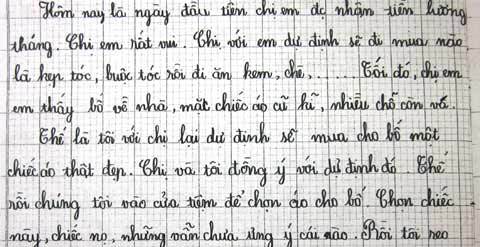 Hôm nay là ngày đầu tiên chị em đc nhận tiền lương
tháng. Chị em rất vui. Chị với em dự định sẽ đi mua nào
là kẹp tóc, buộc tóc rồi đi ăn kem, chè,...... Tối đó, chị em
em thấy bố về nhà, mặt chiếc áo cũ kĩ, nhiều chỗ còn vá.
Thế là tôi với chị lại dự định sẽ mua cho bố một
chiếc áo thật đẹp. Chị và tôi đồng ý với dự định đó. Thế
rồi chúng tôi vào cửa tiệm để chọn áo cho bố. Chọn chiếc
này, chiếc nọ, nhưng vẫn chưa ưng ý cái nào. Rồi tôi reo